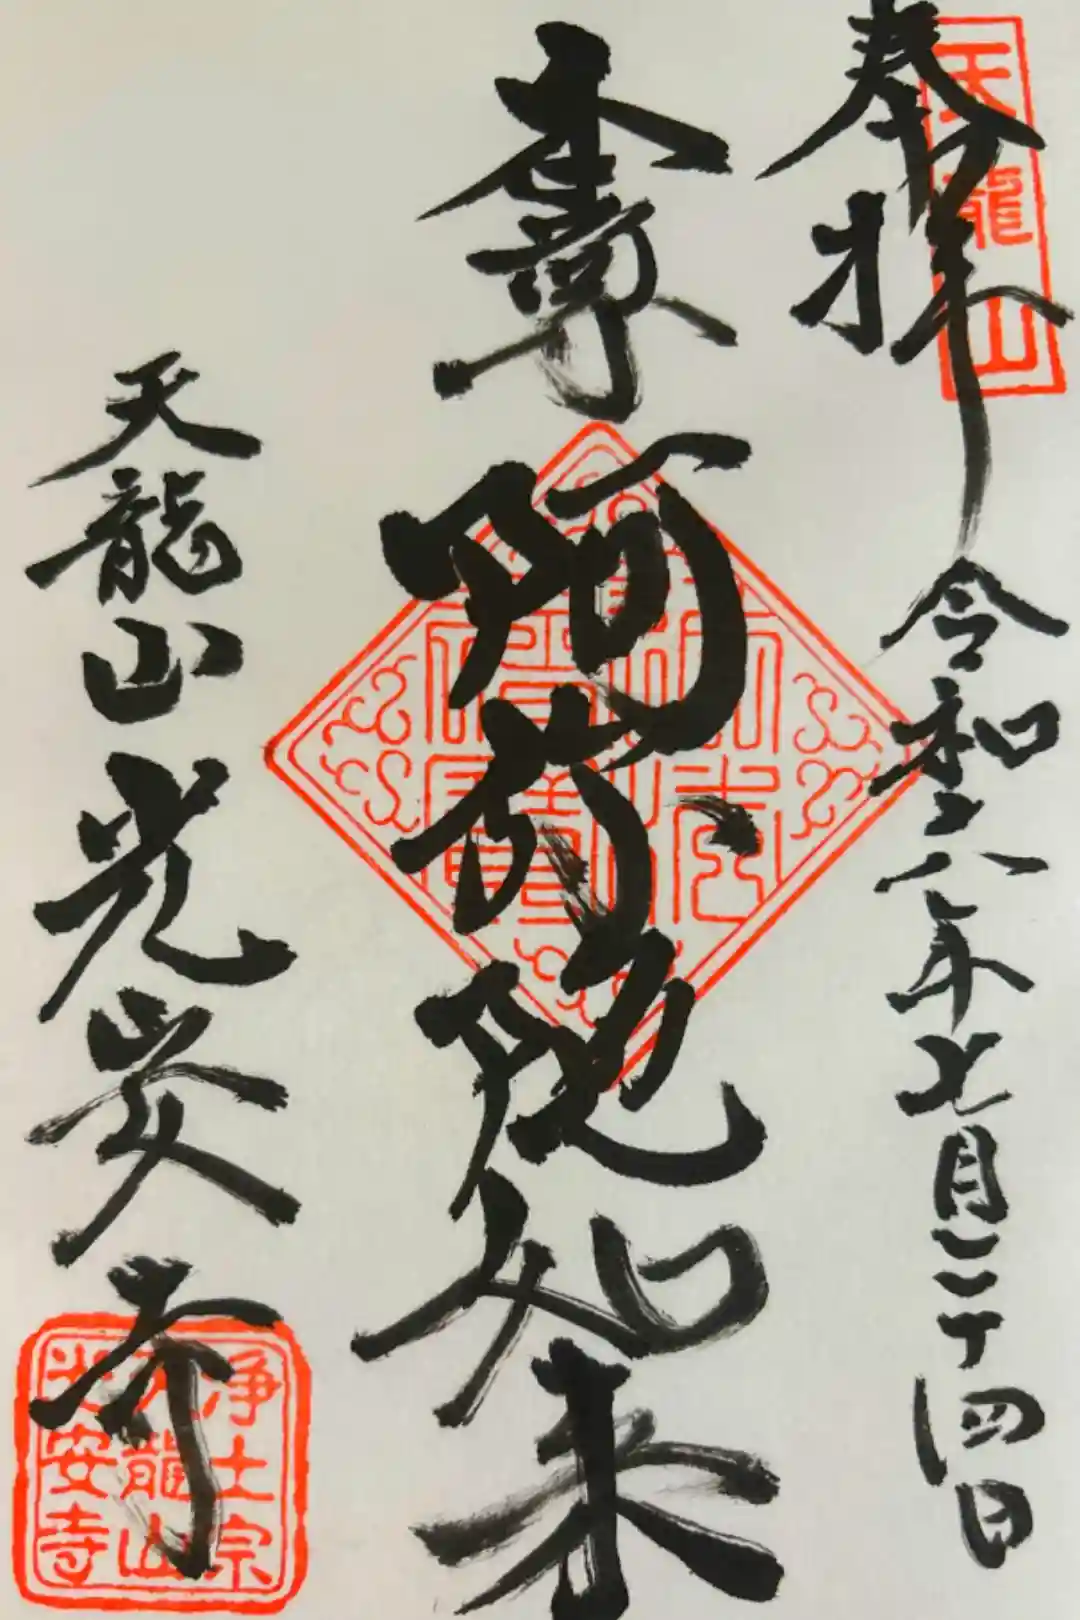 奉拝 令和六年七月二十四日
天龍山
本尊 阿弥陀如来
天龍山 光安寺
浄土宗
天龍山
光安寺